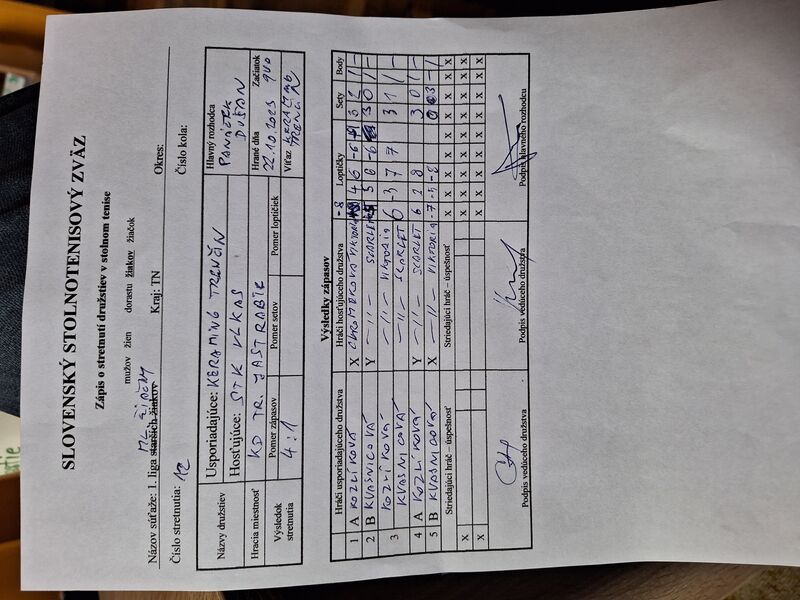 SLOVENSKÝ STOLNOTENISOVÝ ZVÄZ
Zápis o stretnutí družstiev v stolnom tenise
mužov žien dorastu žiakov žiačok
Názov súťaže: 1. liga starších žiakov Kraj: TN Okres:
Číslo stretnutia: 12 Číslo kola:
Názvy družstiev Usporiadajúce: KERAMING TRENČÍN
Hosťujúce: STK VLKAS
Hlavný rozhodca DUŠAN
Hracia miestnosť KD TR. JASTRABIE
Hrané dňa 22.10.2023 Začiatok 900
Výsledok stretnutia Pomer zápasov 4:1 Pomer setov Pomer loptičiek Víťaz KERAMING TRENČÍN
Výsledky zápasov
Hráči usporiadajúceho družstva Hráči hosťujúceho družstva Loptičky Sety Body
1 A KOZLÍKOVÁ X VIKTÓRIA
2 B KVASNICOVÁ Y -//- SCARLET 3 0 1 -
3 KOZLÍKOVÁ -//- VIKTÓRIA 6 -3 7 7 3 1 1 -
KVASNICOVÁ -//- SCARLET
4 A KOZLÍKOVÁ Y -//- SCARLET 6 2 8 3 0 1 -
5 B KVASNICOVÁ X -//- VIKTÓRIA
Striedajúci hráč – úspešnosť Striedajúci hráč – úspešnosť X X X X X X X X X
X X X X X X X X X X
X X X X X X X X X X
Podpis vedúceho družstva Podpis vedúceho družstva Podpis hlavného rozhodcu